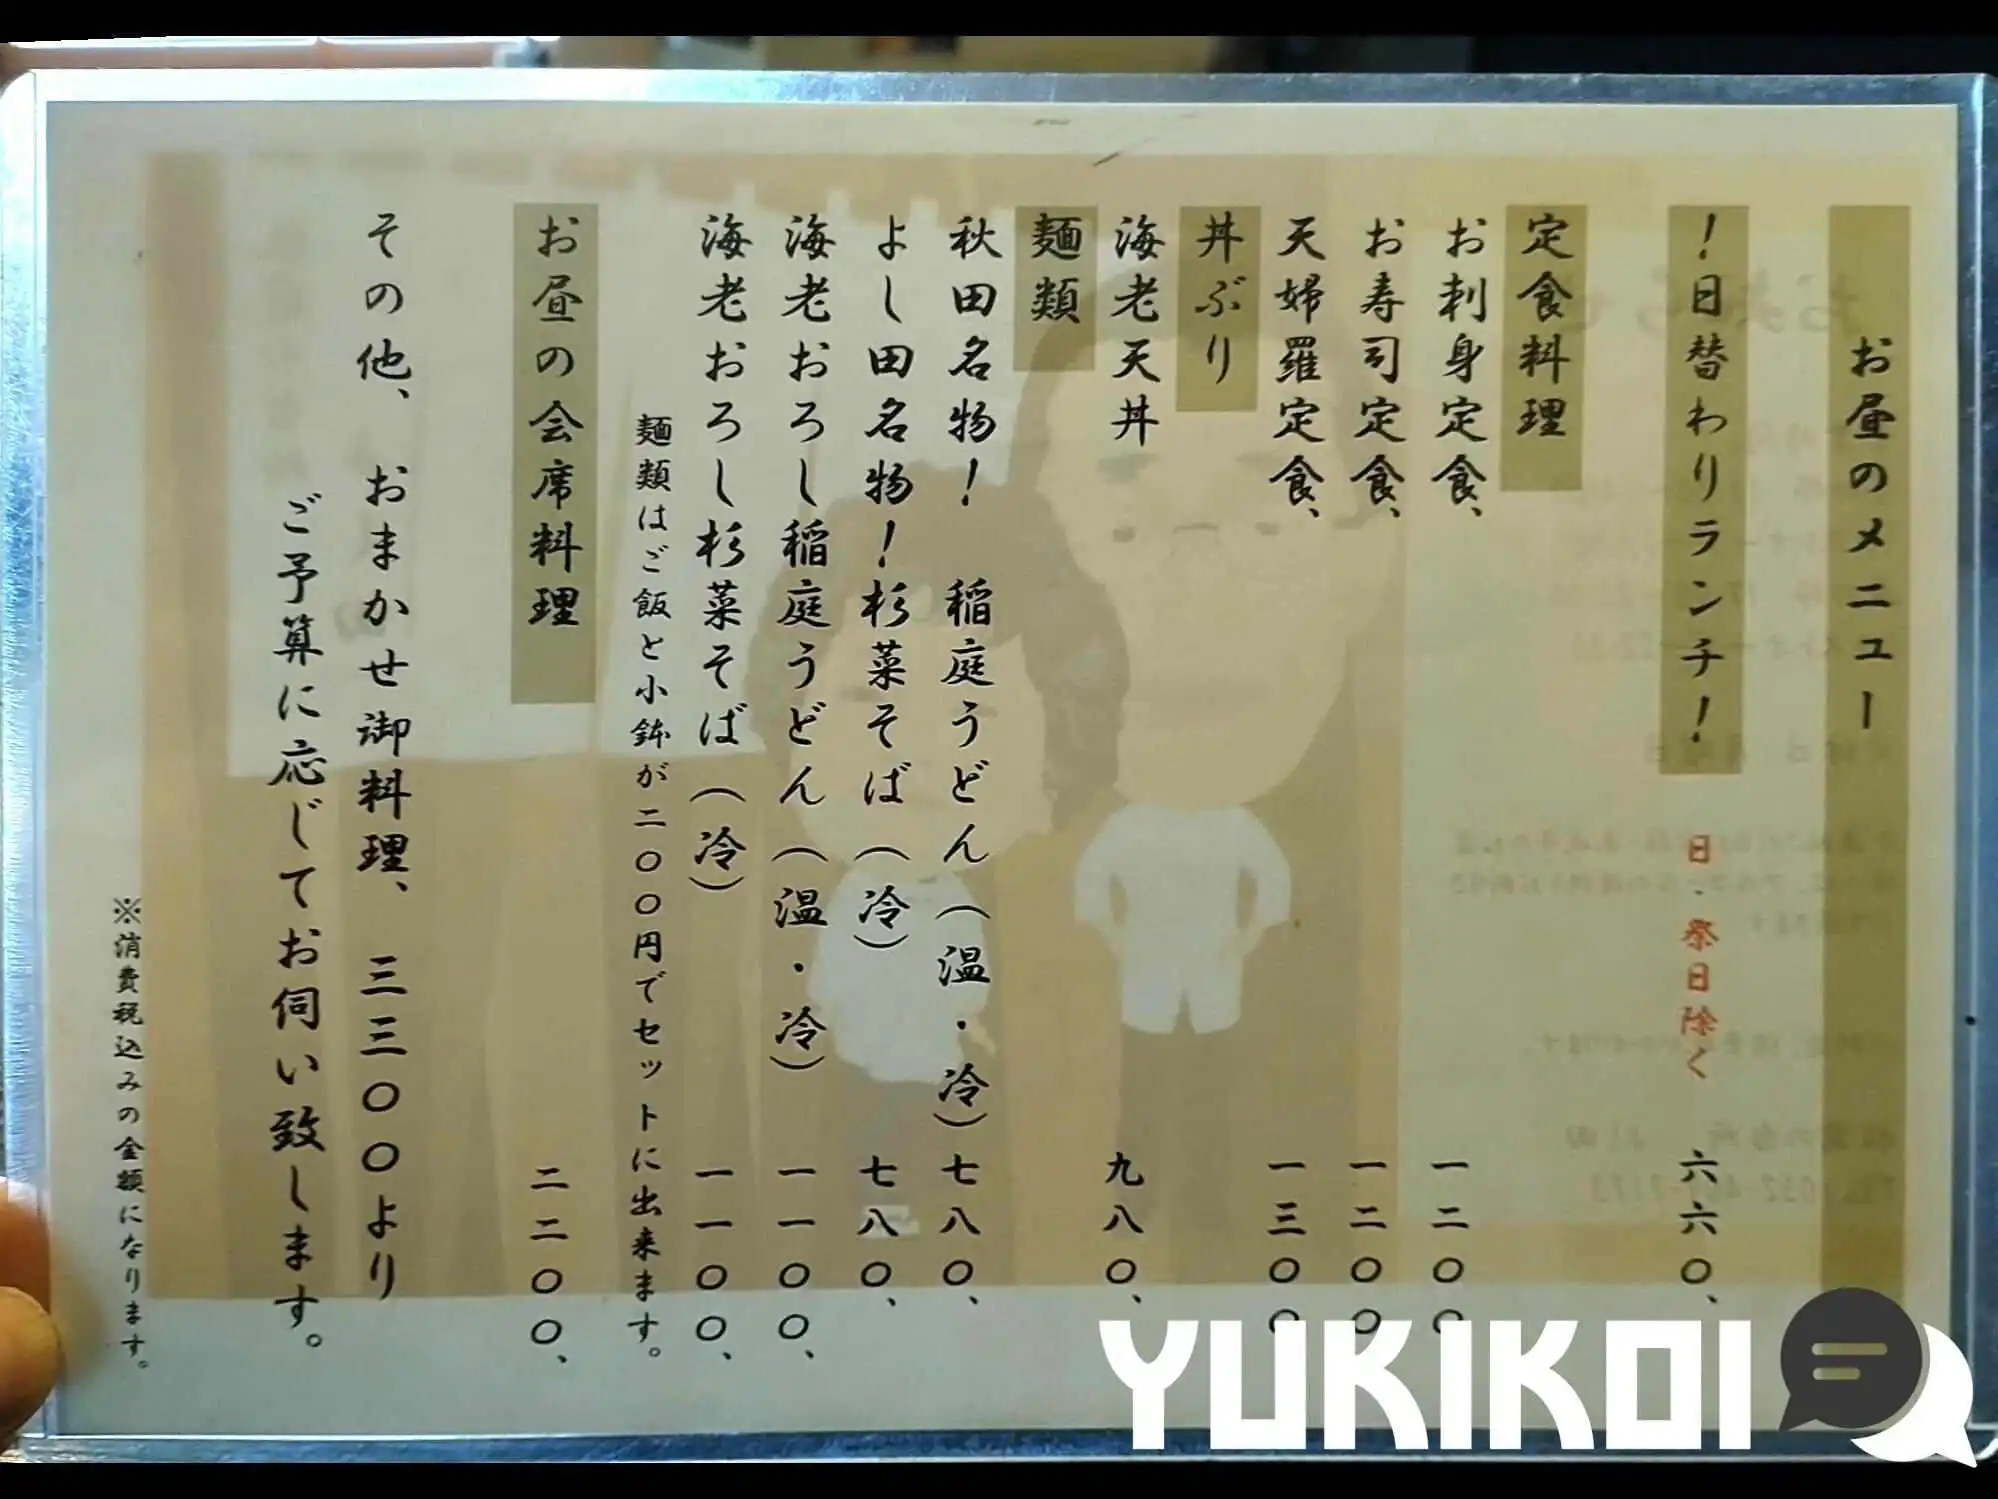 お昼のメニュー
！日替わりランチ！ 日・祭日除く 六六〇、
定食料理
お刺身定食、 一二〇〇
お寿司定食、 一二〇〇
天婦羅定食、 一三〇〇
丼ぶり
海老天丼 九八〇、
麺類
秋田名物！ 稲庭うどん（温・冷） 七八〇、
よし田名物！杉菜そば（冷） 七八〇、
海老おろし稲庭うどん（温・冷） 一一〇〇、
海老おろし杉菜そば（冷） 一一〇〇、
麺類はご飯と小鉢が二〇〇円でセットに出来ます。
お昼の会席料理 二二〇〇、
その他、 おまかせ御料理、 三三〇〇より
ご予算に応じてお伺い致します。
※消費税込みの金額になります。
YUKIKOI